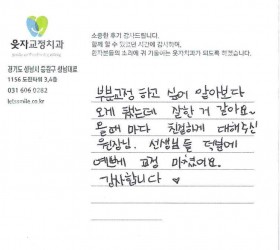 소중한 후기 감사드립니다.
함께 할 수 있었던 시간에 감사하며,
환자분들의 소리에 귀 기울이는 웃자치과가 되도록 하겠습니다.
웃자교정치과
경기도 성남시 중원구 성남대로
1156 도원타워 3,4층
031 606 0282
letssmile.co.kr
부분교정 하고 싶어 알아보다
오게 됐는데 잘한 거 같아요~
올때 마다 친절하게 대해주신
원장님, 선생분들 덕분에
예쁘게 교정 마쳤어요.
감사합니다 ♡